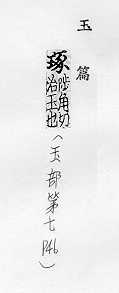 玉篇
琢 陟角切
治玉也
(玉部第七 P46)